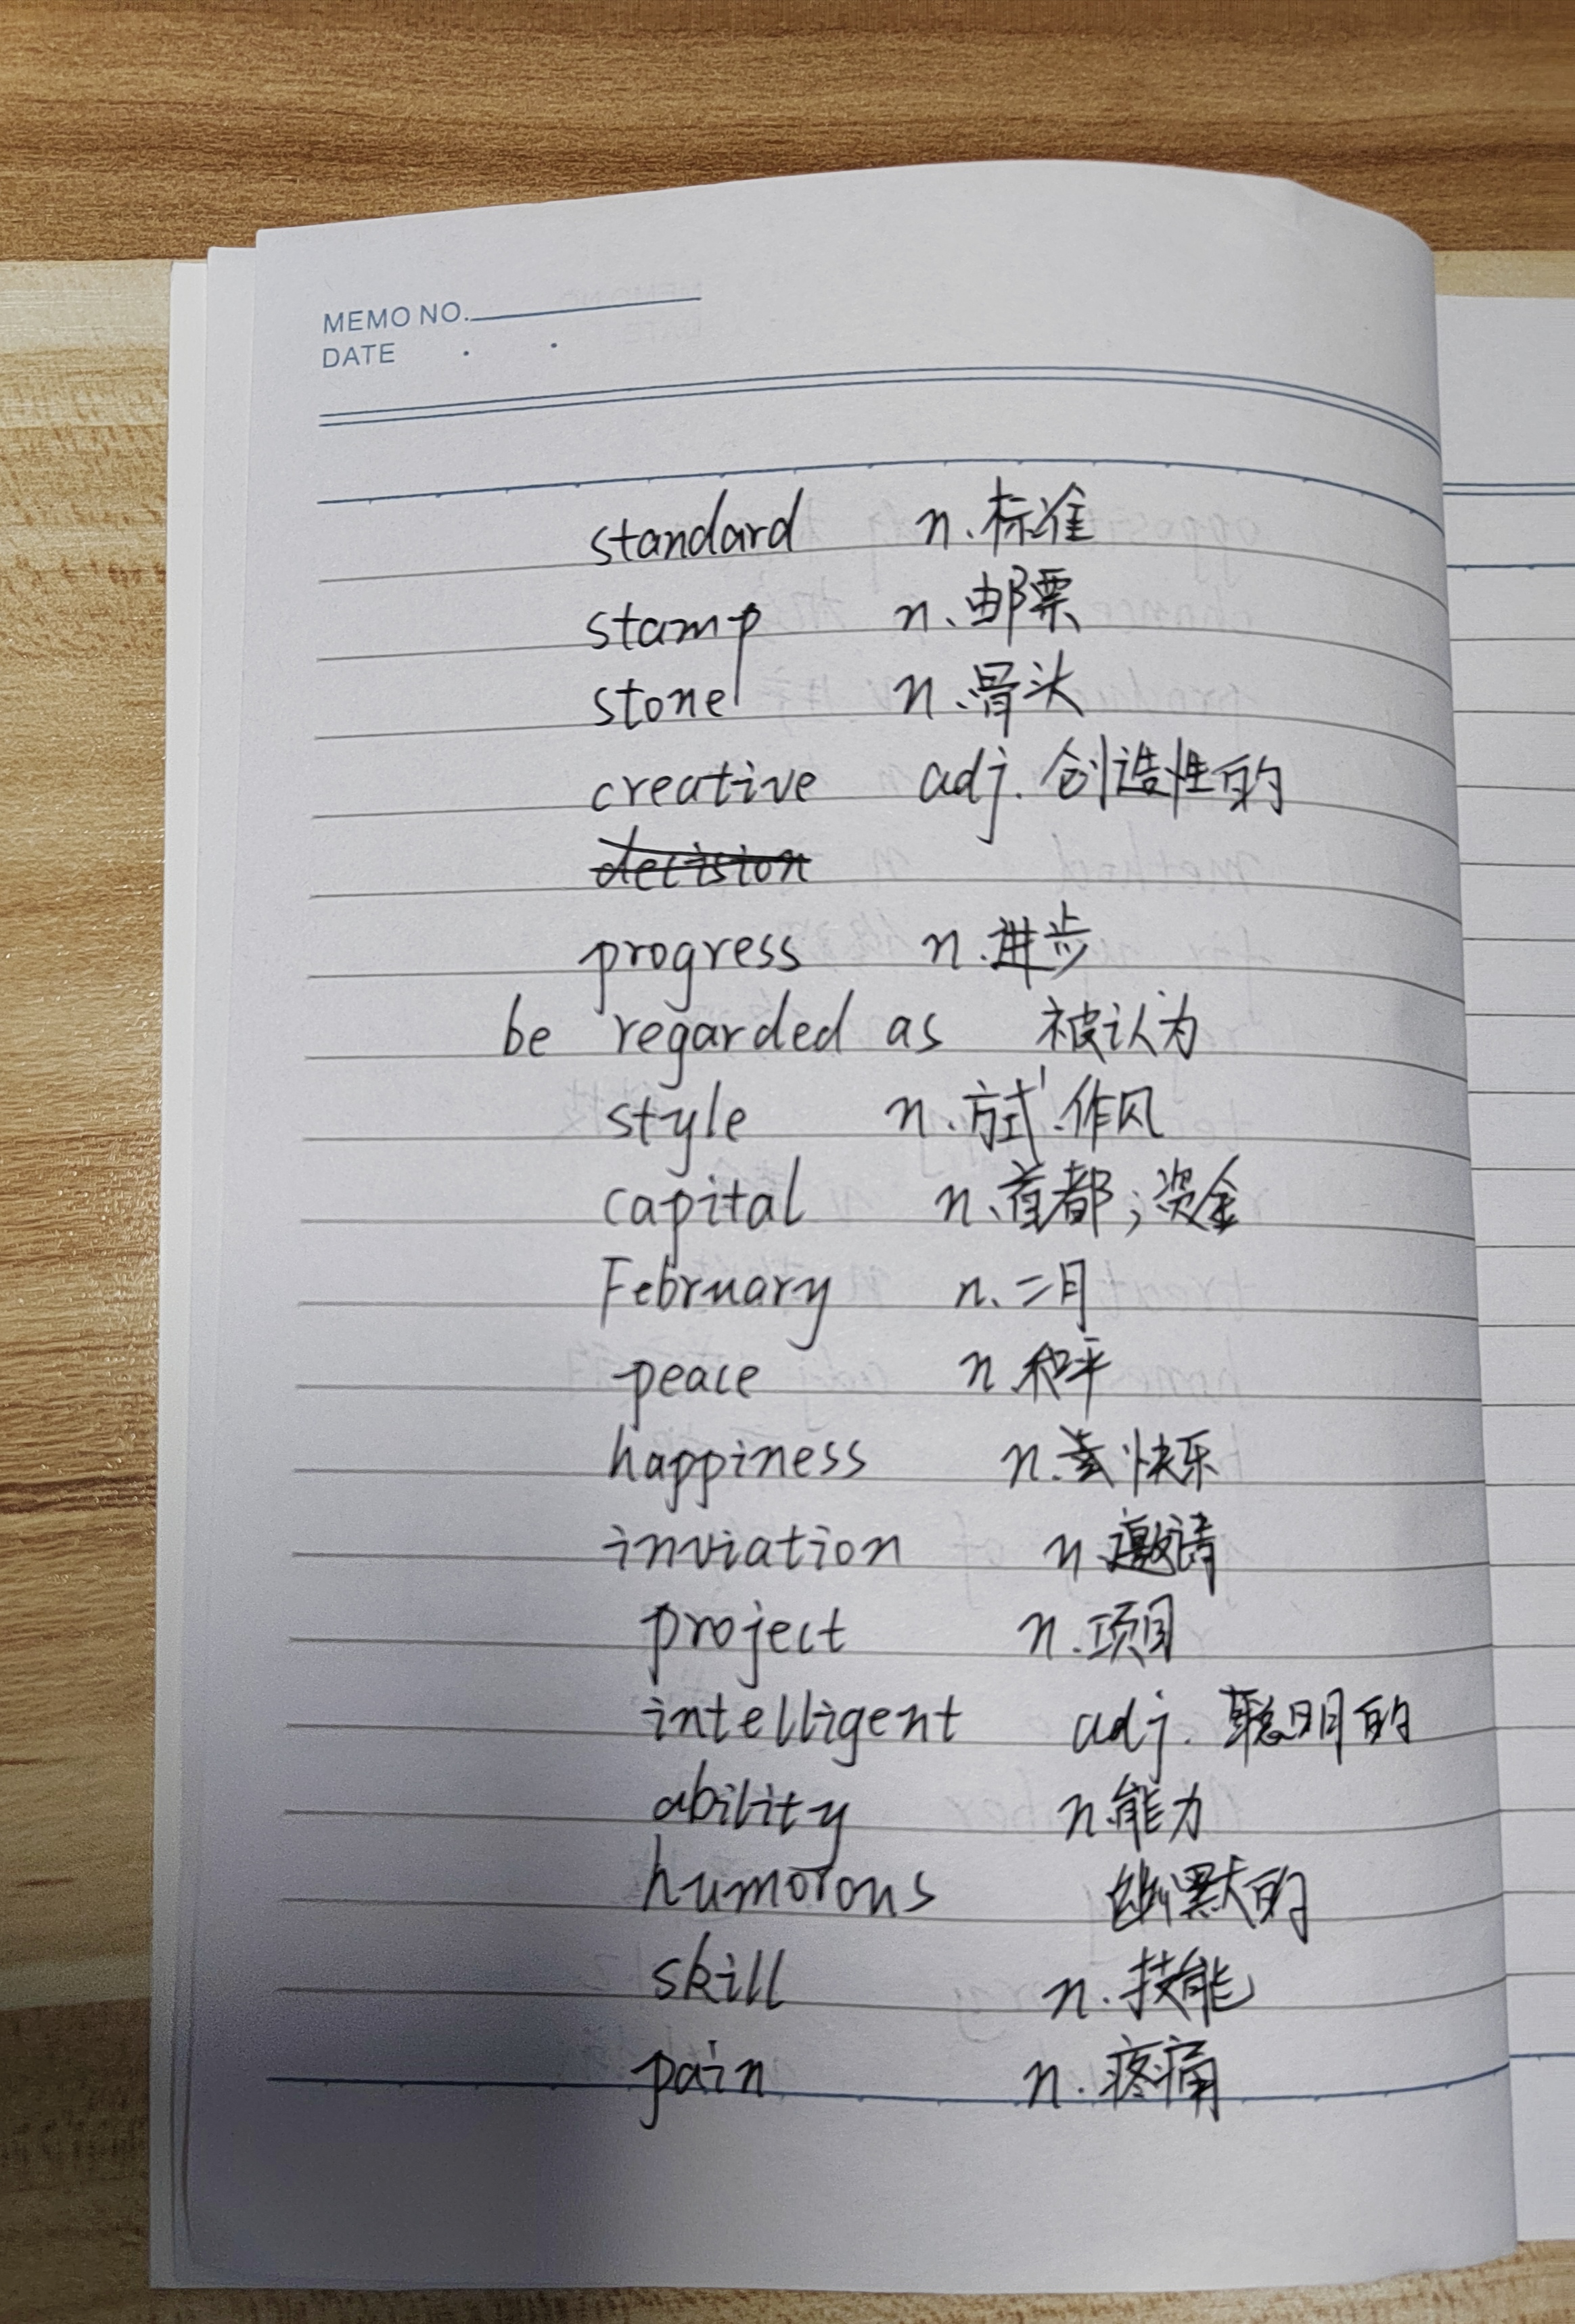 MEMO NO.
DATE . .
standard n.标准
stamp n.邮票
stone n.骨头
creative adj.创造性的
decision
progress n.进步
be regarded as 被认为
style n.方式.作风
capital n.首都;资金
February n.二月
peace n.和平
happiness n.快乐
inviation n.邀请
project n.项目
intelligent adj.聪明的
ability n.能力
humorous 幽默的
skill n.技能
pain n.疼痛